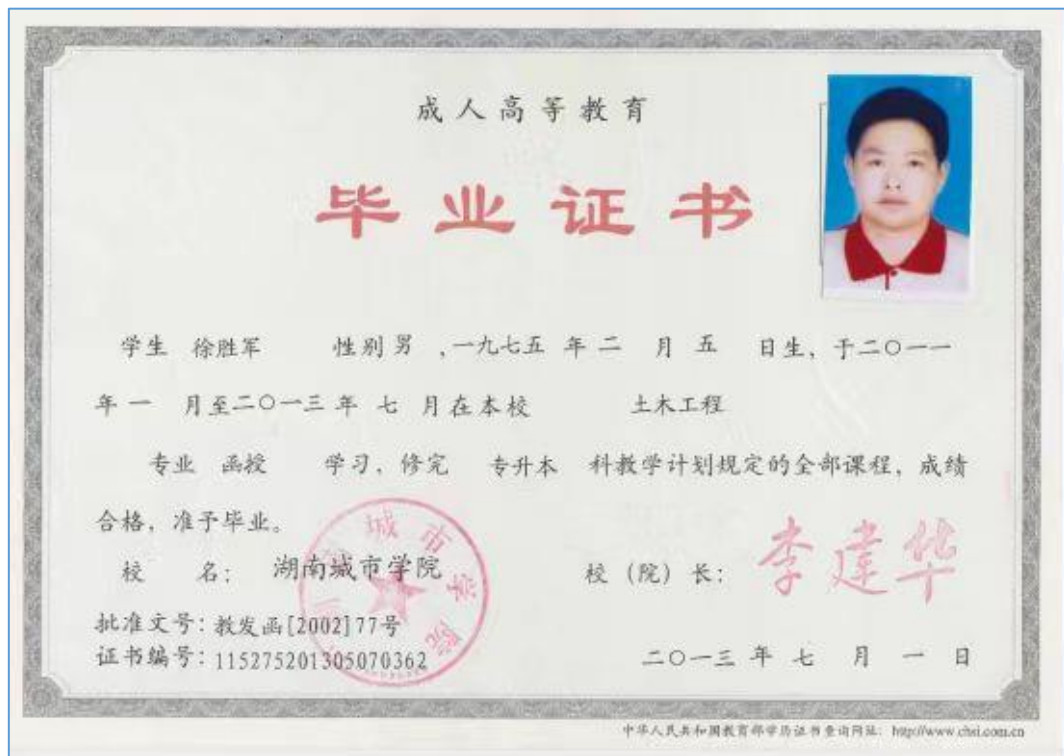 成人高等教育
毕业证书
学生 徐胜军 性别 男 ,一九七五 年 二 月 五 日生, 于二〇一一
年 一 月至二〇一三 年 七 月在本校 土木工程
专业 函授 学习, 修完 专升本 科教学计划规定的全部课程, 成绩
合格, 准予毕业。
校 名: 湖南城市学院
校 (院) 长: 李建华
批准文号: 教发函[2002]77号
证书编号: 115275201305070362
二〇一三 年 七 月 一 日
中华人民共和国教育部学历证书查询网址: http://www.chsi.com.cn